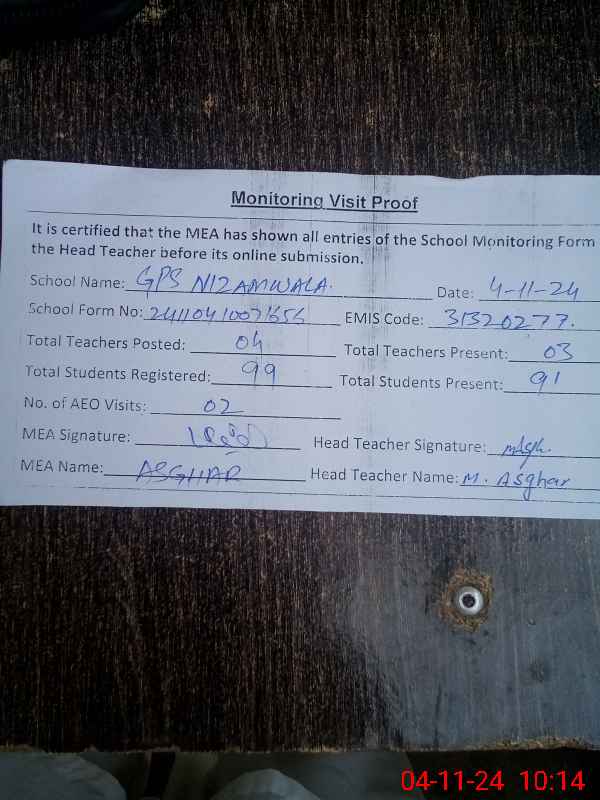 Monitoring Visit Proof
It is certified that the MEA has shown all entries of the School Monitoring Form
the Head Teacher before its online submission.
School Name: GPS NIZAMWALA. Date: 4-11-24
School Form No: EMIS Code: 31320277.
Total Teachers Posted: 04 Total Teachers Present: 03
Total Students Registered: 99 Total Students Present: 91
No. of AEO Visits: 02
MEA Signature: Head Teacher Signature:
MEA Name: ASGHAR Head Teacher Name: M. Asghar
04-11-24 10:14